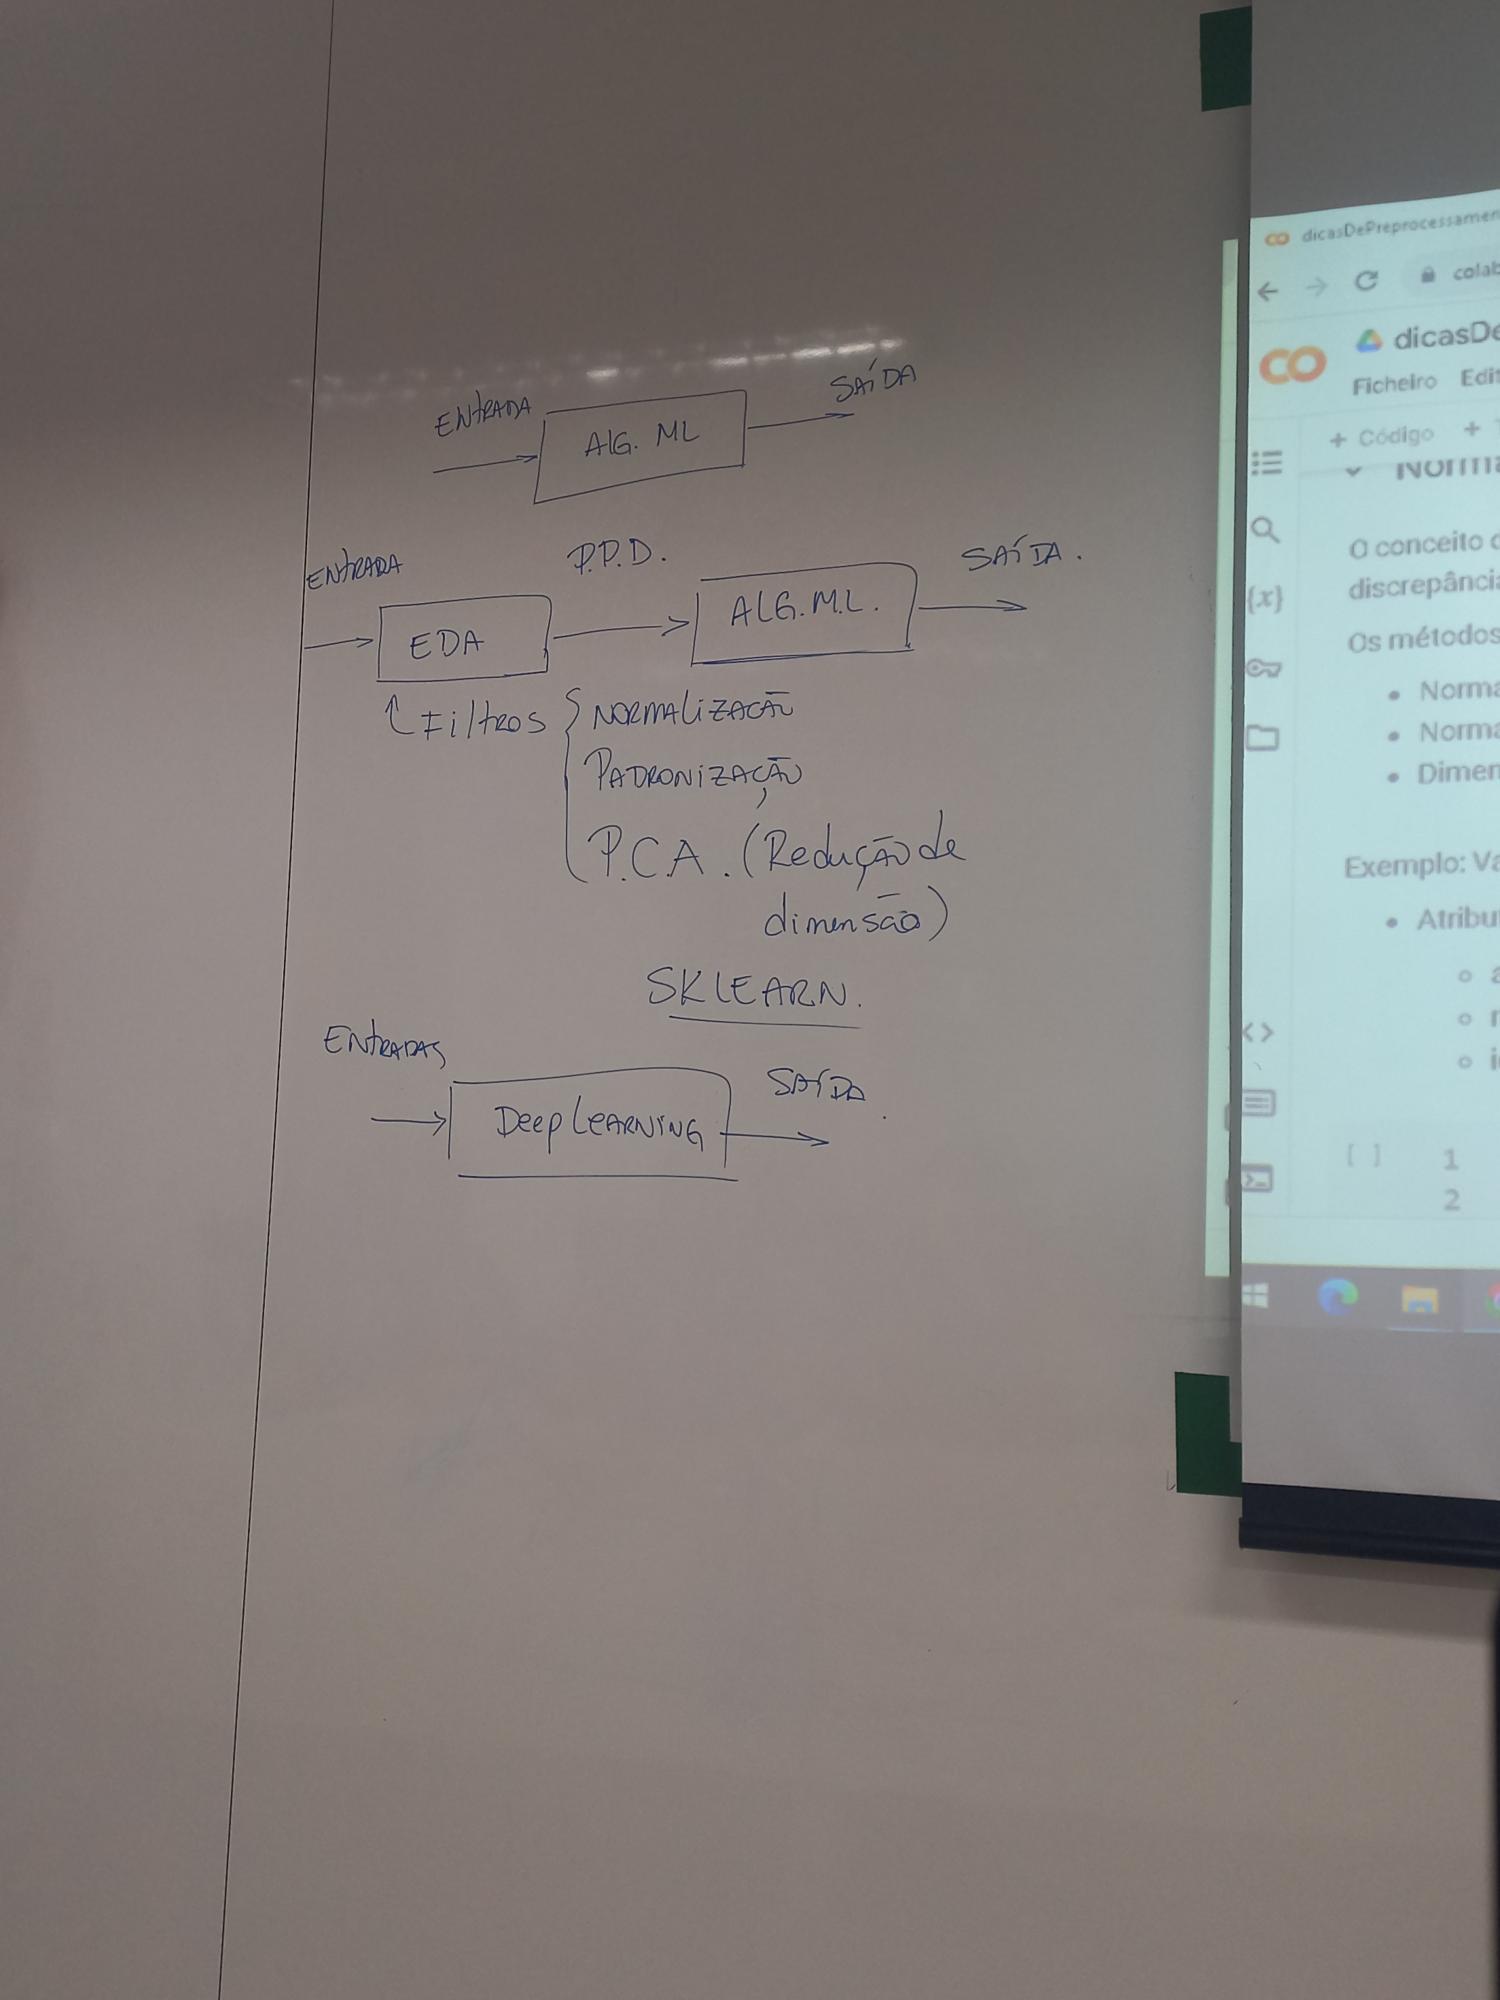 ENTRADA
ALG. ML
SAÍDA
ENTRADA
EDA
P.P.D.
ALG. M.L.
SAÍDA.
Filtros
NORMALIZACÃO
PADRONIZAÇÃO
P.C.A. (Redução de
dimensão)
SKLEARN.
ENTRADAS
Deep LEARNING
SAÍDA
dicasDePreprocessamen
colab
CO
dicasDe
Ficheiro Edit
+ Código +
Norma
O conceito
discrepância
{x}
Os métodos
• Norma
• Norma
• Dimen
Exemplo: Va
• Atribu
<>
[ ] 1
2